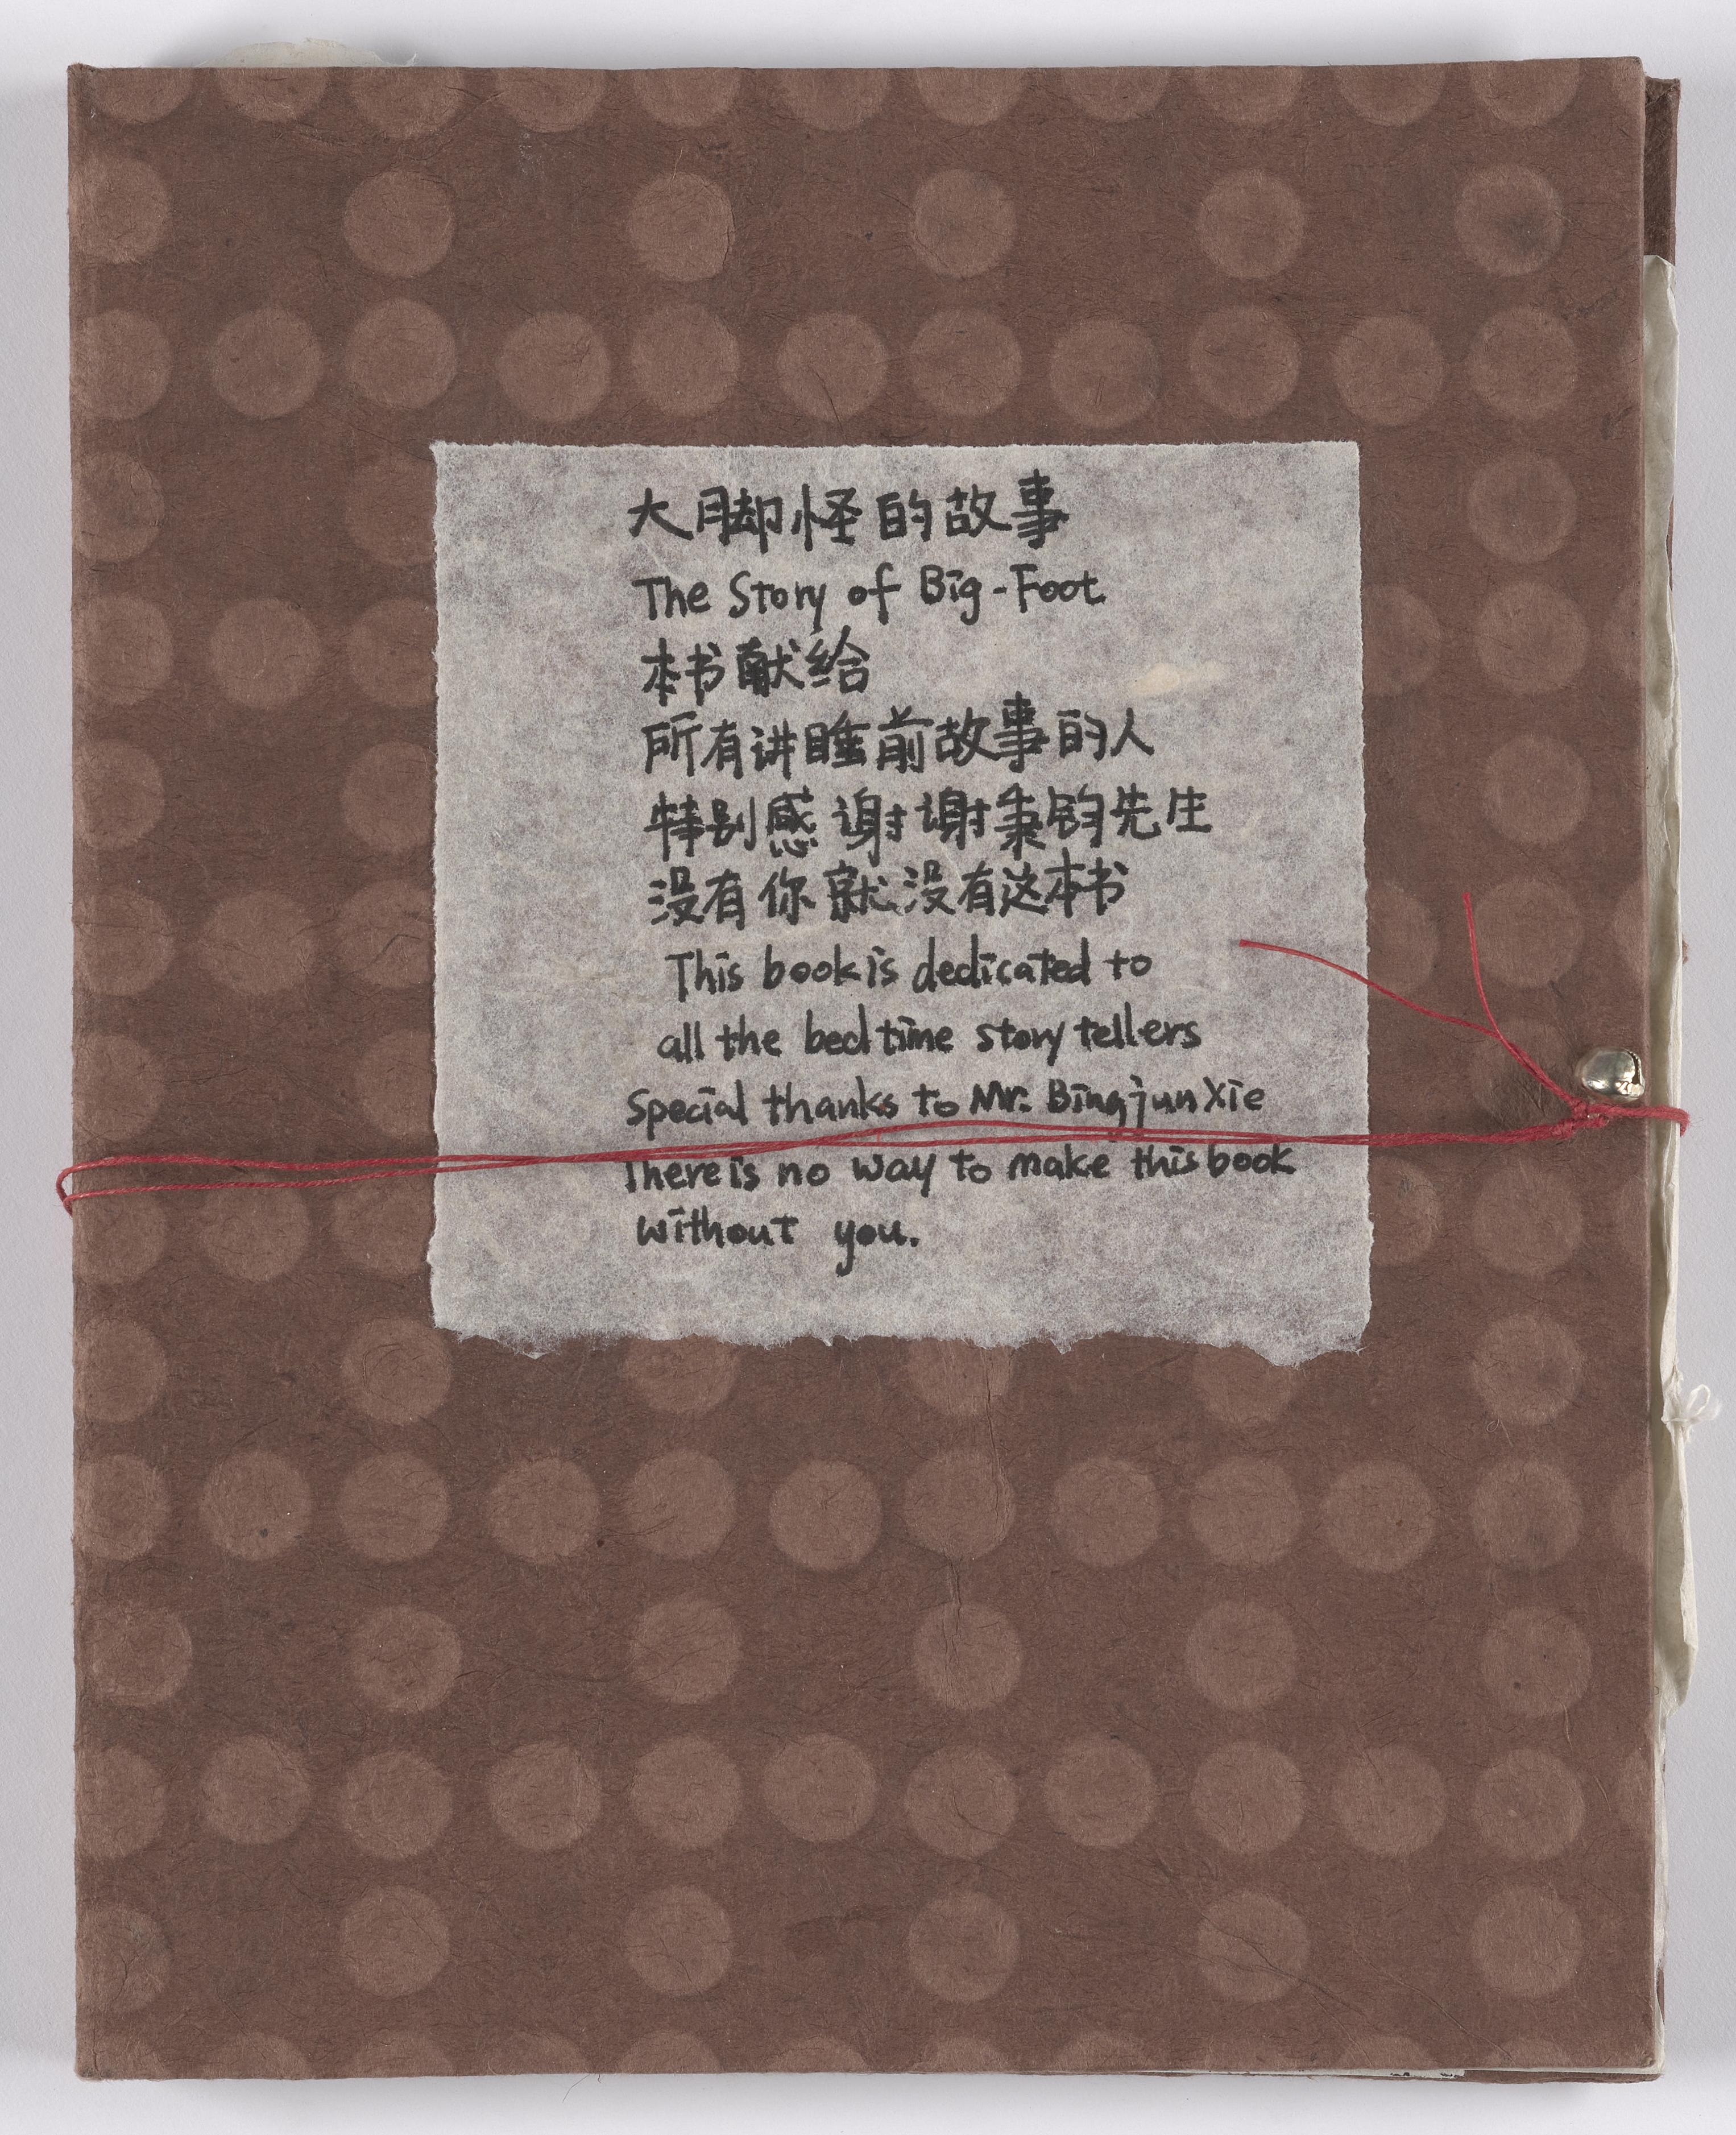 大脚怪的故事
The Story of Big-Foot
本书献给
所有讲睡前故事的人
特别感谢谢秉钧先生
没有你就没有这本书
This book is dedicated to
all the bedtime story tellers
Special thanks to Mr. Bingjun Xie
There is no way to make this book
without you.